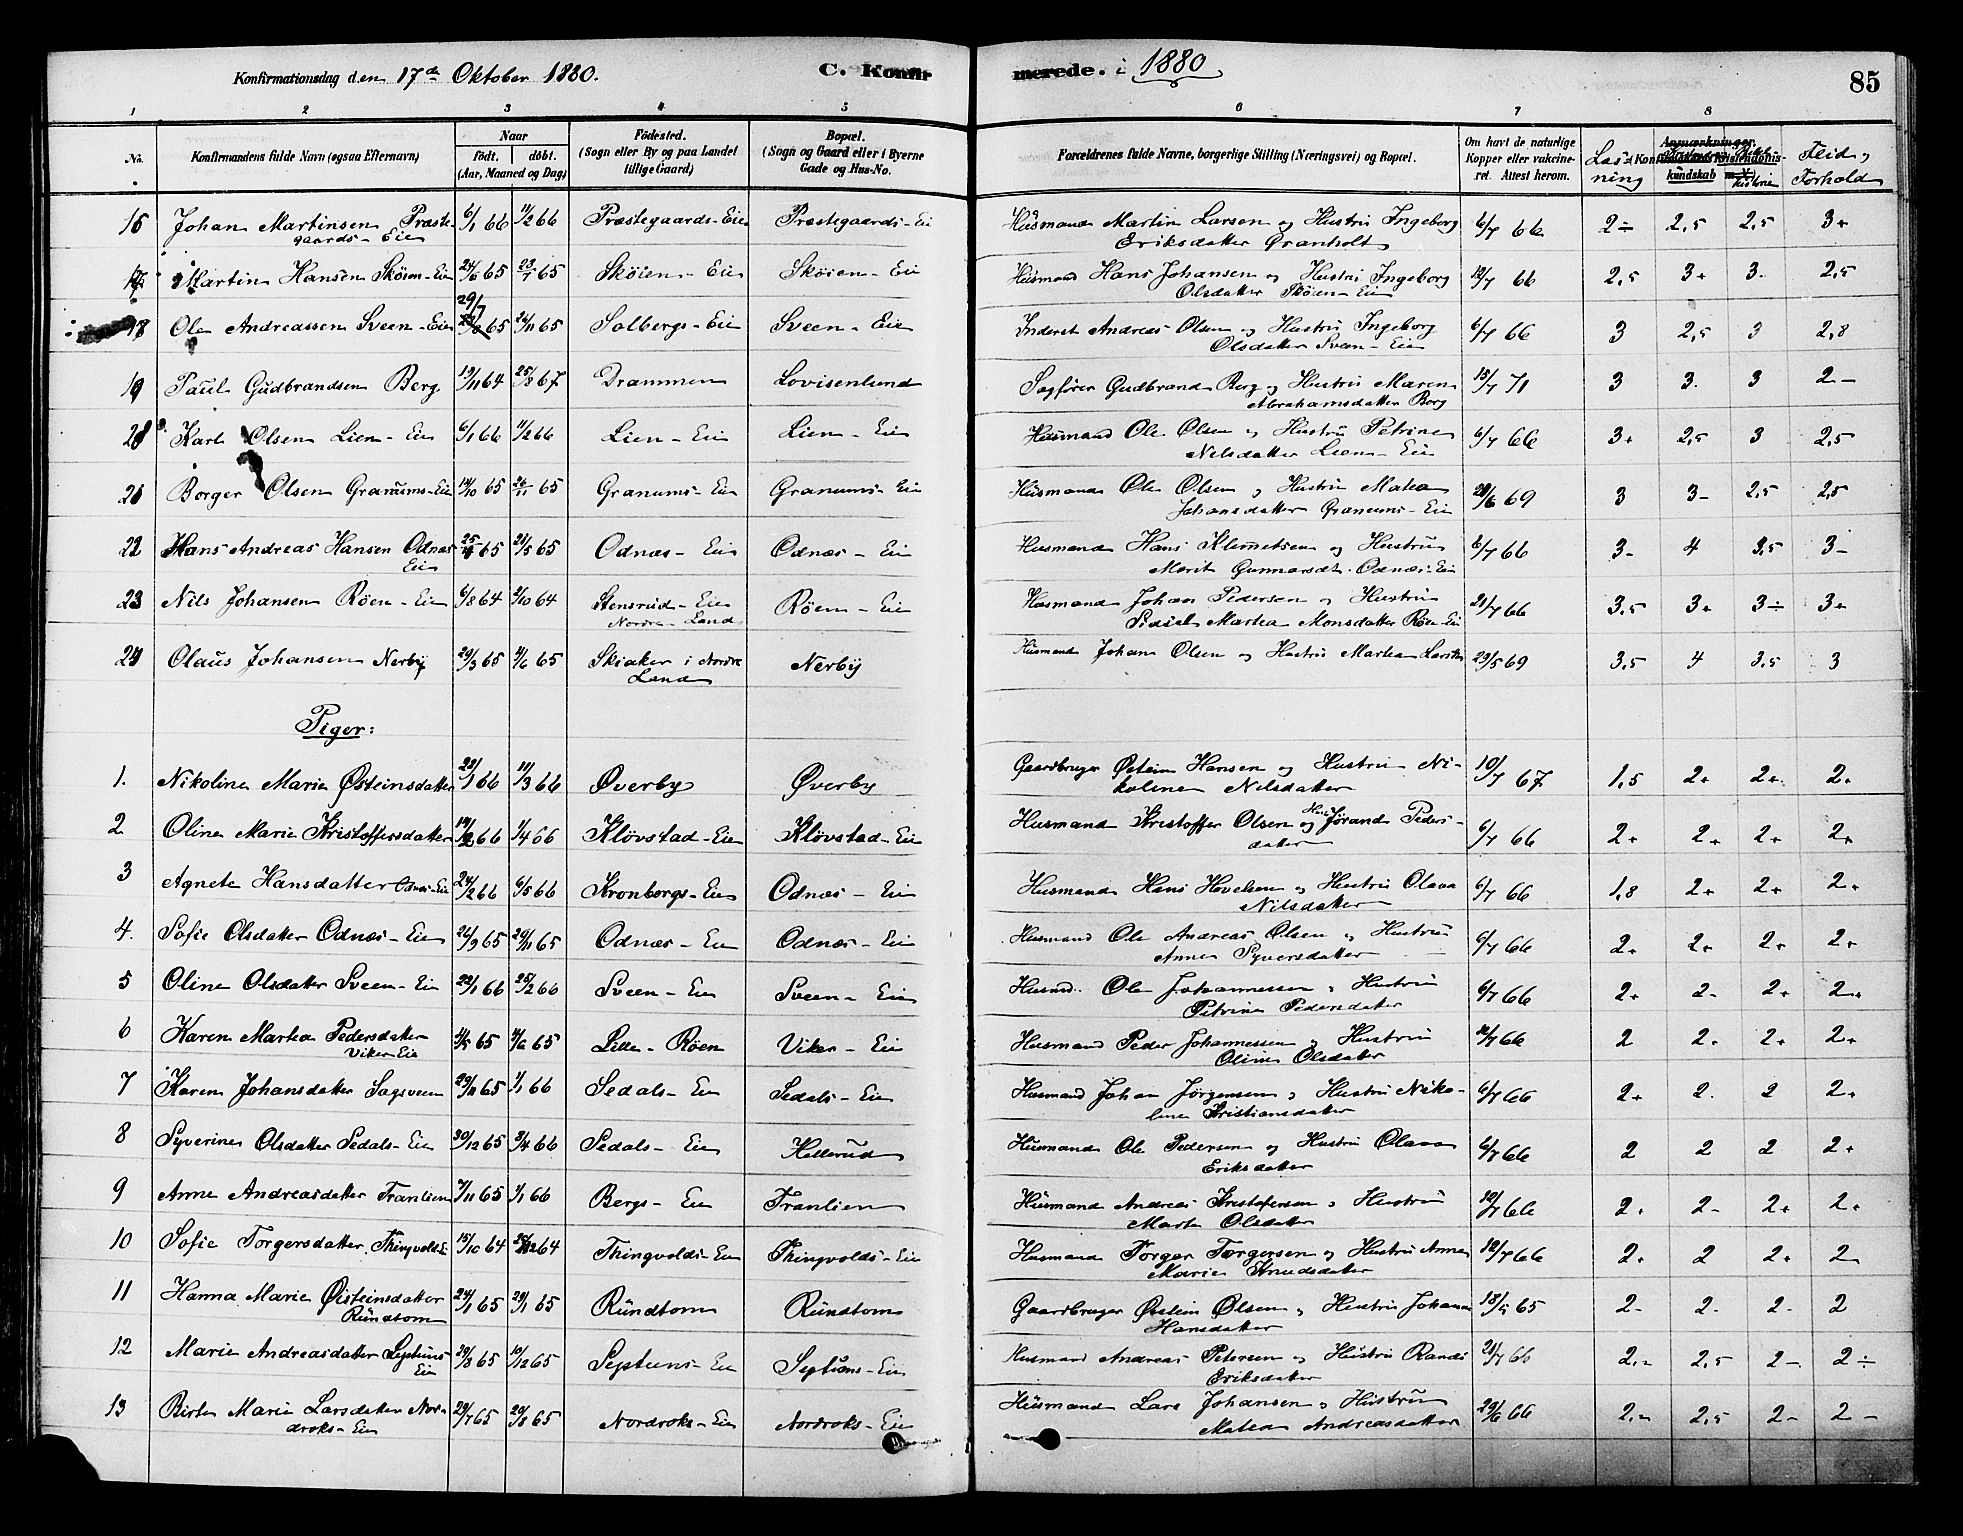 Konfirmationsdag den 17de Oktober 1880.
C. Konfir
merede. i 1880
85
1 2 3 4 5 6 7 8
No. Konfirmandens fulde Navn (ogsaa Efternavn) Naar født. døbt. (Aar, Maaned og Dag) Fødested. (Sogn eller By og paa Landet tillige Gaard) Bopæl. (Sogn og Gaard eller i Byerne Gade og Hus-No.
Forældrenes fulde Navne, borgerlige Stilling (Næringsvei) og Bopæl. Om havt de naturlige Kopper eller vakcineret. Attest herom. Læsning kundskab historie Flid og Forhold
16 Johan Martinsen Præste- 6/1 66 11/2 66 Præstegaards-Eie Præstegaards-Eie Husmand Martin Larsen og Hustru Ingeborg 6/7 66 2÷ 2,5 2,5 3+
gaards-Eie Eriksdatter Granholt
17 Martin Hansen Skøien-Eie 24/6 65 23/7 65 Skøien-Eie Skøien-Eie Husmand Hans Johansen og Hustru Ingeborg 12/7 66 2,5 3+ 3- 2,5
Olsdatter Skøien-Eie
18 Ole Andreassen Sveen-Eie 29/7 65 26/11 65 Solbergs-Eie Sveen-Eie Inderst Andreas Olsen og Hustru Ingeborg 6/7 66 3 2,5 3 2,8
Olsdatter Sveen-Eie
19 Paul Gudbrandsen Berg 19/11 64 25/3 67 Drammen Lovisenlund Sagfører Gudbrand Berg og Hustru Maren 13/7 71 3 3. 3 2-
Abrahamsdatter Berg
20 Karl Olsen Lien-Eie 6/1 66 11/2 66 Lien-Eie Lien-Eie Husmand Ole Olsen og Hustru Petrine 6/7 66 3+ 2,5 3 2,5
Nilsdatter Lien-Eie
21 Borger Olsen Granums-Eie 14/10 65 26/11 65 Granums-Eie Granums-Eie Husmand Ole Olsen og Hustru Matea 28/6 69 3 3- 2,5 2,5
Johansdatter Granums-Eie
22 Hans Andreas Hansen Odnæs 25/4 65 21/5 65 Odnæs-Eie Odnæs-Eie Husmand Hans Klemetsen og Hustru 6/7 66 3- 4 3,5 3-
Eie Marit Gunnarsdt. Odnæs-Eie
23 Nils Johansen Røen-Eie 6/8 64 2/10 64 Stensrud-Eie Røen-Eie Husmand Johan Pedersen og Hustru 21/7 66 3,5 3+ 3÷ 3+
Nordre-Land Sidsel Martea Monsdatter Røen-Eie
24 Olaus Johansen Nerby 29/3 65 4/6 65 Skiaker i Nordre Nerby Husmand Johan Olsen og Hustru Martea Larsdtr 23/5 69 3,5 4 3,5 3
Land
Piger:
1. Nikoline Marie Østeinsdatter 22/1 66 11/3 66 Øverby Øverby Gaardbruger Østein Hansen og Hustru Ni- 10/7 67 1,5 2+ 2+ 2+
koline Nilsdatter
2 Oline Marie Kristoffersdatter 19/2 66 1/4 66 Kløvstad-Eie Kløvstad-Eie Husmand Kristoffer Olsen og Hustr Jørand Peders- 6/7 66 2+ 2+ 2+ 2+
datter
3 Agnete Hansdatter Odnæs-Eie 24/2 66 6/5 66 Kronborgs-Eie Odnæs-Eie Husmand Hans Hovelsen og Hustru Olava 6/7 66 1,8 2+ 2+ 2+
Nilsdatter
4. Sofie Olsdatter Odnæs-Eie 26/9 65 20/11 65 Odnæs-Eie Odnæs-Eie Husmand Ole Andreas Olsen og Hustru 6/7 66 2+ 2+ 2+ 2+
Anne Syversdatter
5 Oline Olsdatter Sveen-Eie 22/1 66 25/2 66 Sveen-Eie Sveen-Eie Husmd. Ole Johannessen og Hustru 6/7 66 2+ 2- 2+ 2+
Petrine Pedersdatter
6 Karen Martea Pedersdatter 4/5 65 4/6 65 Lille-Røen Viker-Eie Husmand Peder Johannessen og Hustru 66 2 2+ 2+ 2+
Viker-Eie Oline Olsdatter
7 Karen Johansdatter Sagsveen 29/11 65 1/1 66 Sedals-Eie Sedals-Eie Husmand Johan Jørgensen og Hustru Niko- 6/7 66 2+ 2. 2 2+
line Kristiansdatter
8 Syverine Olsdatter Sedals-Eie 30/12 65 2/4 66 Sedals-Eie Hellerud Husmand Ole Pedersen og Hustru Olava 6/7 66 2 2 2 2+
Eriksdatter
9 Anne Andreasdatter Tranlien 7/11 65 1/1 66 Bergs-Eie Tranlien Husmand Andreas Kristofersen og Hustru 12/7 66 2+ 2- 2+ 2+
Marte Olsdatter
10 Sofie Torgersdatter Thingvolds-E 15/10 64 12 64 Thingvolds-Eie Thingvolds-Eie Husmand Torger Torgersen og Hustru Anne 12/7 66 2+ 2 2+ 2
Marie Knudsdatter
11 Hanna Marie Øisteinsdatter 24/1 65 29/1 65 Rundtom Rundtom Gaardbruger Østein Olsen og Hustru Johanne 18/5 65 2- 2- 2- 2
Rundtom Hansdatter
12 Marie Andreasdatter Septuns- 29/3 65 10/12 65 Septuns-Eie Septuns-Eie Husmand Andreas Petersen og Hustru Randi 21/7 66 2,- 2,5 2- 2÷
Eie Eriksdatter
13 Birte Marie Larsdatter Nor- 29/7 65 20/8 65 Nordroks-Eie Nordroks-Eie Husmand Lars Johansen og Hustru 29/6 66 2,- 2,5 2- 2-
droks-Eie Matea Andreasdatter